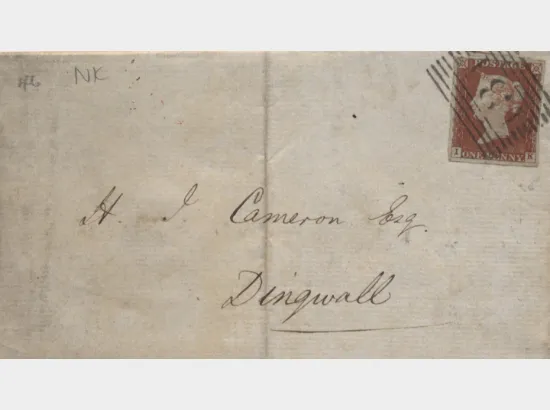 NK
POSTAGE
I K
ONE PENNY
H. J. Cameron Esq.
Dingwall